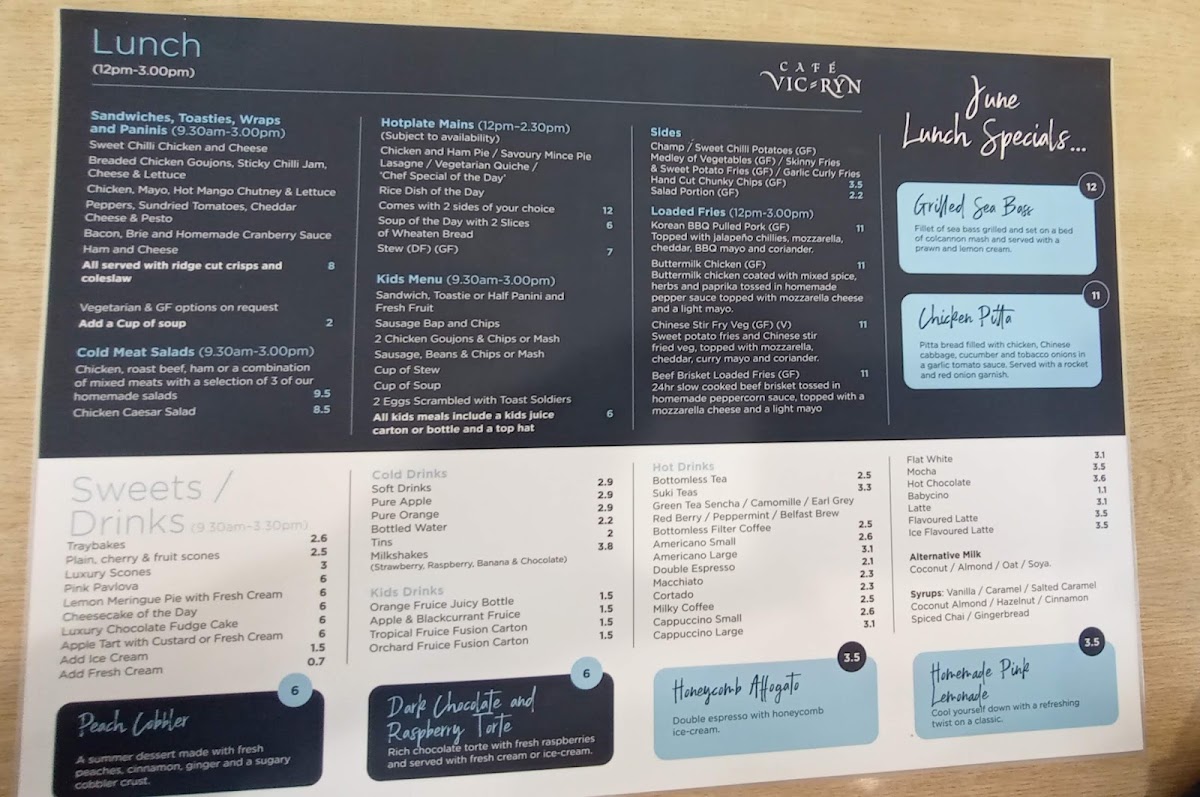 Lunch
(12pm-3.00pm)
CAFÉ
VIC-RYN
Sandwiches, Toasties, Wraps
and Paninis (9.30am-3.00pm)
Sweet Chilli Chicken and Cheese
Breaded Chicken Goujons, Sticky Chilli Jam,
Cheese & Lettuce
Chicken, Mayo, Hot Mango Chutney & Lettuce
Peppers, Sundried Tomatoes, Cheddar
Cheese & Pesto
Bacon, Brie and Homemade Cranberry Sauce
Ham and Cheese
All served with ridge cut crisps and 8
coleslaw
Vegetarian & GF options on request
Add a Cup of soup 2
Cold Meat Salads (9.30am-3.00pm)
Chicken, roast beef, ham or a combination
of mixed meats with a selection of 3 of our
homemade salads 9.5
Chicken Caesar Salad 8.5
Hotplate Mains (12pm-2.30pm)
(Subject to availability)
Chicken and Ham Pie / Savoury Mince Pie
Lasagne / Vegetarian Quiche /
'Chef Special of the Day'
Rice Dish of the Day
Comes with 2 sides of your choice 12
Soup of the Day with 2 Slices 6
of Wheaten Bread
Stew (DF) (GF) 7
Kids Menu (9.30am-3.00pm)
Sandwich, Toastie or Half Panini and
Fresh Fruit
Sausage Bap and Chips
2 Chicken Goujons & Chips or Mash
Sausage, Beans & Chips or Mash
Cup of Stew
Cup of Soup
2 Eggs Scrambled with Toast Soldiers
All kids meals include a kids juice 6
carton or bottle and a top hat
Sides
Champ / Sweet Chilli Potatoes (GF)
Medley of Vegetables (GF) / Skinny Fries
& Sweet Potato Fries (GF) / Garlic Curly Fries
Hand Cut Chunky Chips (GF) 3.5
Salad Portion (GF) 2.2
Loaded Fries (12pm-3.00pm)
Korean BBQ Pulled Pork (GF) 11
Topped with jalapeño chillies, mozzarella,
cheddar, BBQ mayo and coriander.
Buttermilk Chicken (GF) 11
Buttermilk chicken coated with mixed spice,
herbs and paprika tossed in homemade
pepper sauce topped with mozzarella cheese
and a light mayo.
Chinese Stir Fry Veg (GF) (V) 11
Sweet potato fries and Chinese stir
fried veg, topped with mozzarella,
cheddar, curry mayo and coriander.
Beef Brisket Loaded Fries (GF) 11
24hr slow cooked beef brisket tossed in
homemade peppercorn sauce, topped with a
mozzarella cheese and a light mayo
June
Lunch Specials...
12
Grilled Sea Bass
Fillet of sea bass grilled and set on a bed
of colcannon mash and served with a
prawn and lemon cream.
11
Chicken Pitta
Pitta bread filled with chicken, Chinese
cabbage, cucumber and tobacco onions in
a garlic tomato sauce. Served with a rocket
and red onion garnish.
Sweets /
Drinks (9.30am-3.30pm)
Traybakes 2.6
Plain, cherry & fruit scones 2.5
Luxury Scones 3
Pink Pavlova 6
Lemon Meringue Pie with Fresh Cream 6
Cheesecake of the Day 6
Luxury Chocolate Fudge Cake 6
Apple Tart with Custard or Fresh Cream 6
Add Ice Cream 1.5
Add Fresh Cream 0.7
Cold Drinks
Soft Drinks 2.9
Pure Apple 2.9
Pure Orange 2.9
Bottled Water 2.2
Tins 2
Milkshakes 3.8
(Strawberry, Raspberry, Banana & Chocolate)
Kids Drinks
Orange Fruice Juicy Bottle 1.5
Apple & Blackcurrant Fruice 1.5
Tropical Fruice Fusion Carton 1.5
Orchard Fruice Fusion Carton 1.5
Hot Drinks
Bottomless Tea 2.5
Suki Teas 3.3
Green Tea Sencha / Camomille / Earl Grey
Red Berry / Peppermint / Belfast Brew
Bottomless Filter Coffee 2.5
Americano Small 2.6
Americano Large 3.1
Double Espresso 2.1
Macchiato 2.3
Cortado 2.3
Milky Coffee 2.5
Cappuccino Small 2.6
Cappuccino Large 3.1
Flat White 3.1
Mocha 3.5
Hot Chocolate 3.6
Babycino 1.1
Latte 3.1
Flavoured Latte 3.5
Ice Flavoured Latte 3.5
Alternative Milk
Coconut / Almond / Oat / Soya.
Syrups: Vanilla / Caramel / Salted Caramel
Coconut Almond / Hazelnut / Cinnamon
Spiced Chai / Gingerbread
6
Peach Cobbler
A summer dessert made with fresh
peaches, cinnamon, ginger and a sugary
cobbler crust.
6
Dark Chocolate and
Raspberry Torte
Rich chocolate torte with fresh raspberries
and served with fresh cream or ice-cream.
3.5
Honeycomb Affogato
Double espresso with honeycomb
ice-cream.
3.5
Homemade Pink
Lemonade
Cool yourself down with a refreshing
twist on a classic.